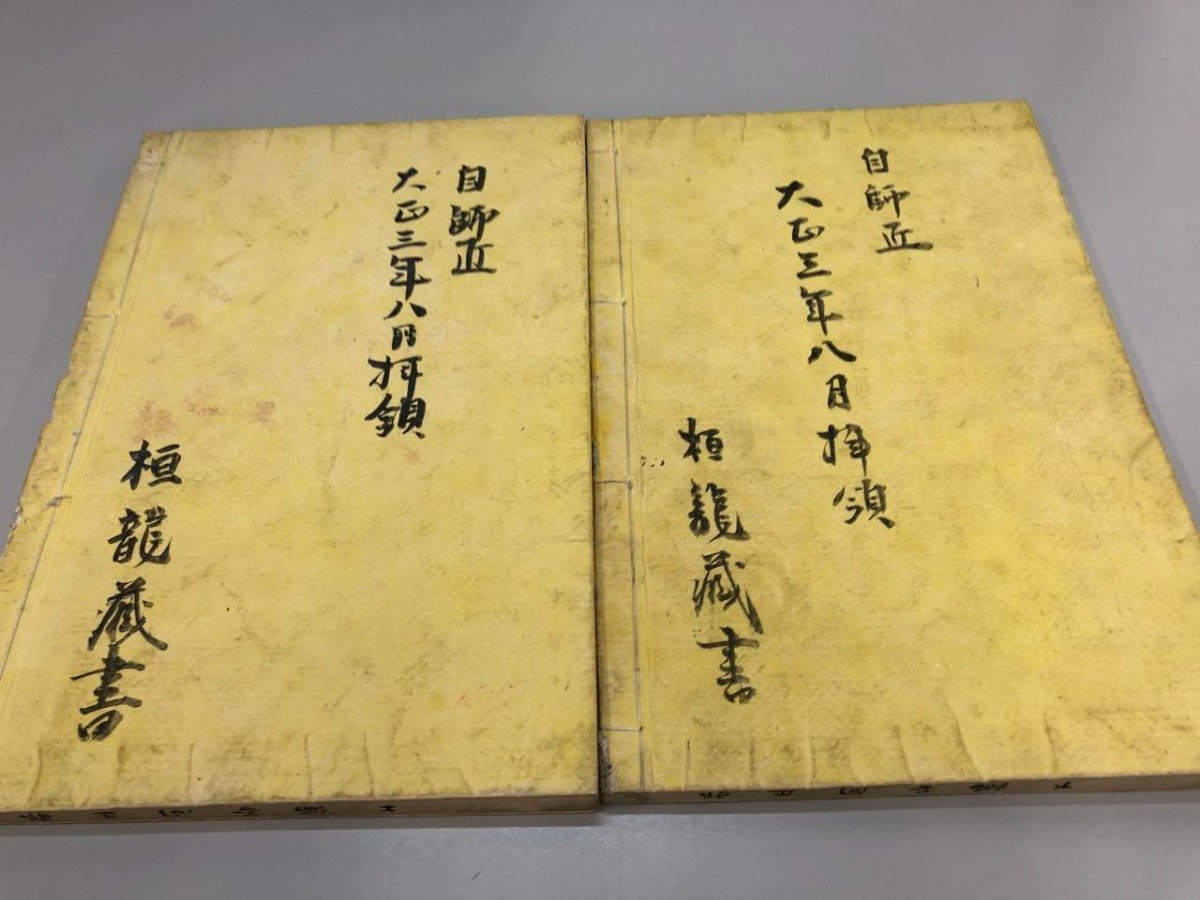 自師匠
大正三年八月拝領
桓龍蔵書
自師匠
大正三年八月拝領
桓龍蔵書